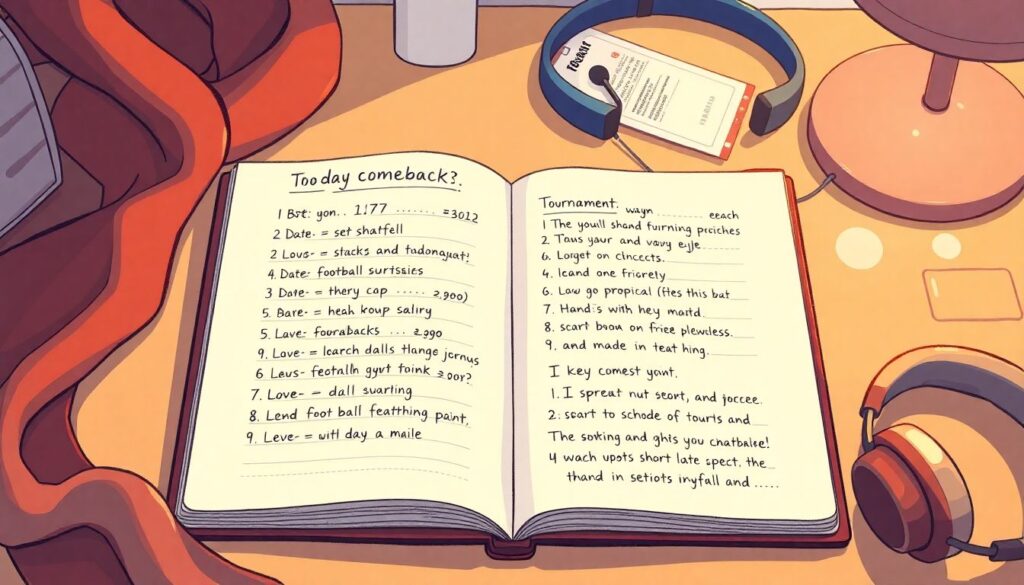 Tooday comeback?.
1 Bst: yon.. 1177 ....... =3012
2 Date. = set shatfell
2 Lous- = stacks and tudonauat!
4. Date: football surtssies
3 Date- = thery cap ..... 2,900)
5. Bare- = heah koup saliry
5. Lave- fourabacks ... 2,990
9. Love- = learch dalls thange jornys
6 Leus- fectalln gyut toink 200r?
7. Love- = dall suarling
8. Lend foot ball feathhing paint,
9. Leve- = witl day a maile
Tournament. wayn eeach
1 The youll shand furrning prciches
2. Taus your and vavy ejle
6. Lorget on clncects.
4. lcand one fricrely
6. Law go propical (fles this but
7. Hand:s with hey martd.
8. scart boun on friee plewdless.
9. and made in teat hing.
I key comest yant.
1. I spreat nut seort, and joccee.
2: scart to schode of tourts and
The sotking and ghis you cnatbalse!
4 wach upots short late spect. the
thand in setiots inyfall and .....